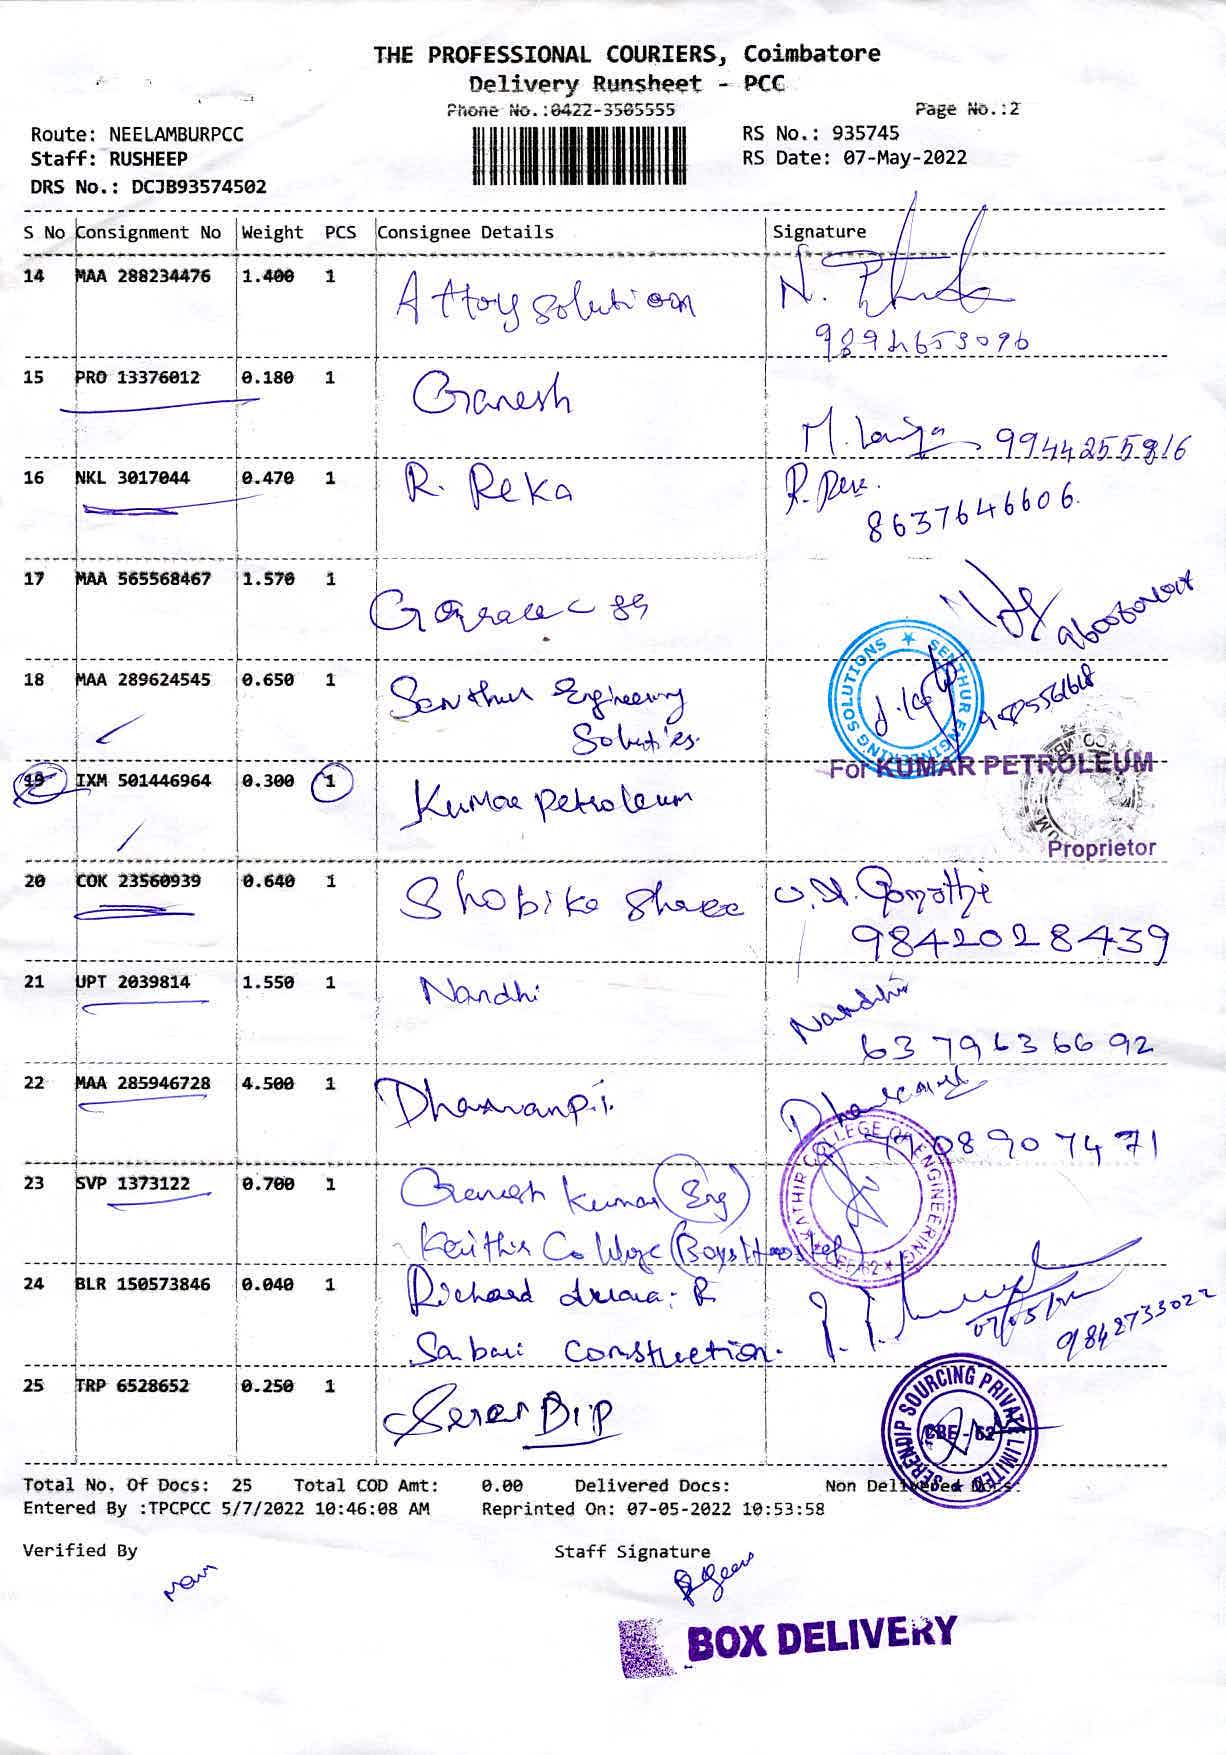 THE PROFESSIONAL COURIERS, Coimbatore
Delivery Runsheet - PCC
Phone No.:0422-3505555
Page No.:2
Route: NEELAMBURPCC
RS No.: 935745
Staff: RUSHEEP
RS Date: 07-May-2022
DRS No.: DCJB93574502
S No Consignment No Weight PCS Consignee Details Signature
14 MAA 288234476 1.400 1 Attoy Solution N.
15 PRO 13376012 0.180 1 Ganesh
M. 9944255816
16 NKL 3017044 0.470 1 R. Reka R.
8637646606.
17 MAA 565568467 1.570 1
18 MAA 289624545 0.650 1 Senthur Engineering
SENTHUR ENGINEERING SOLUTIONS
19 IXM 501446964 0.300 1 Kumar Petroleum
For KUMAR PETROLEUM
Proprietor
20 COK 23560939 0.640 1 Shobika Shree Gomathi
9842028439
21 UPT 2039814 1.550 1 Nandhi Nandhi
6379636692
22 MAA 285946728 4.500 1
8907471
23 SVP 1373122 0.700 1 Ganesh Kumar (Eng)
Kathir College (Boys Hostel)
KATHIR COLLEGE OF ENGINEERING
24 BLR 150573846 0.040 1 Richard R
9842733022
Sabari Construction.
25 TRP 6528652 0.250 1
SERENDIP SOURCING PRIVATE LIMITED
CBE - 62
Total No. Of Docs: 25 Total COD Amt: 0.00 Delivered Docs: Non Delivered Docs:
Entered By :TPCPCC 5/7/2022 10:46:08 AM Reprinted On: 07-05-2022 10:53:58
Verified By Staff Signature
BOX DELIVERY